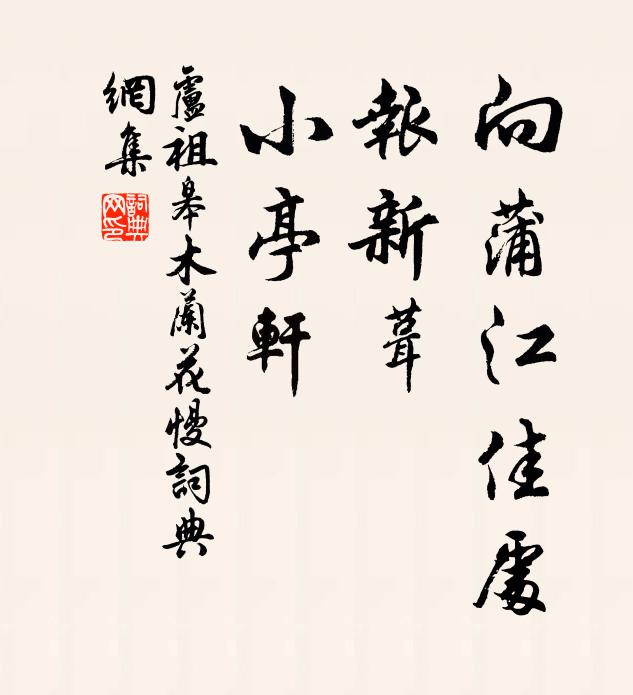 向蒲江佳處
報新葺
小亭軒
盧祖皋木蘭花慢詞典
網集
詞典
网印